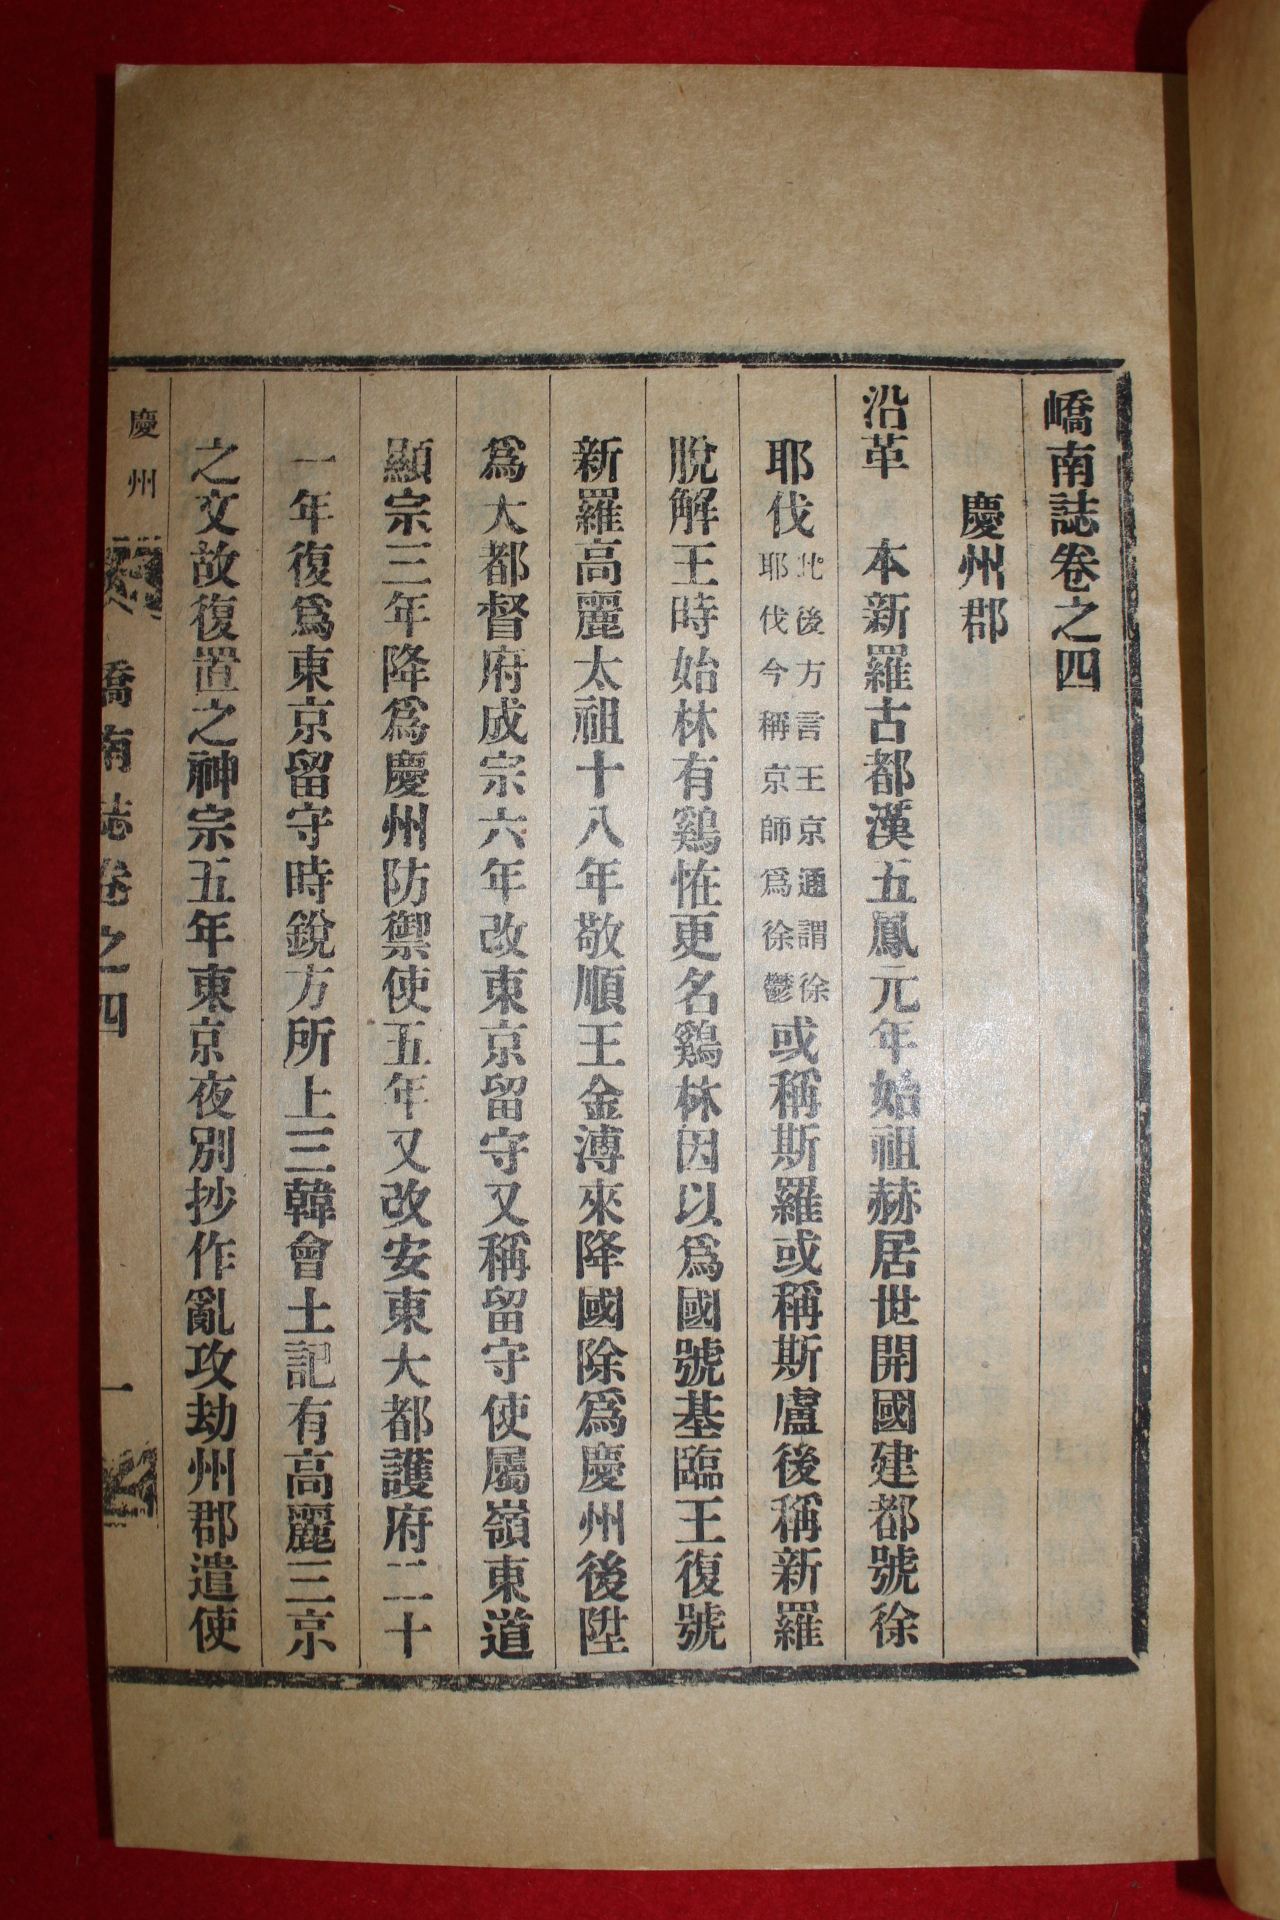 嶠南誌卷之四
慶州郡
沿革 本新羅古都漢五鳳元年始祖赫居世開國建都號徐
耶伐北後方言王京通謂徐耶伐今稱京師爲徐鬱或稱斯羅或稱斯盧後稱新羅
脫解王時始林有鷄恠更名鷄林因以爲國號基臨王復號
新羅高麗太祖十八年敬順王金溥來降國除爲慶州後陞
爲大都督府成宗六年改東京留守又稱留守使屬嶺東道
顯宗三年降爲慶州防禦使五年又改安東大都護府二十
一年復爲東京留守時銳方所上三韓會土記有高麗三京
之文故復置之神宗五年東京夜別抄作亂攻劫州郡遣使
慶州 嶠南誌卷之四 一